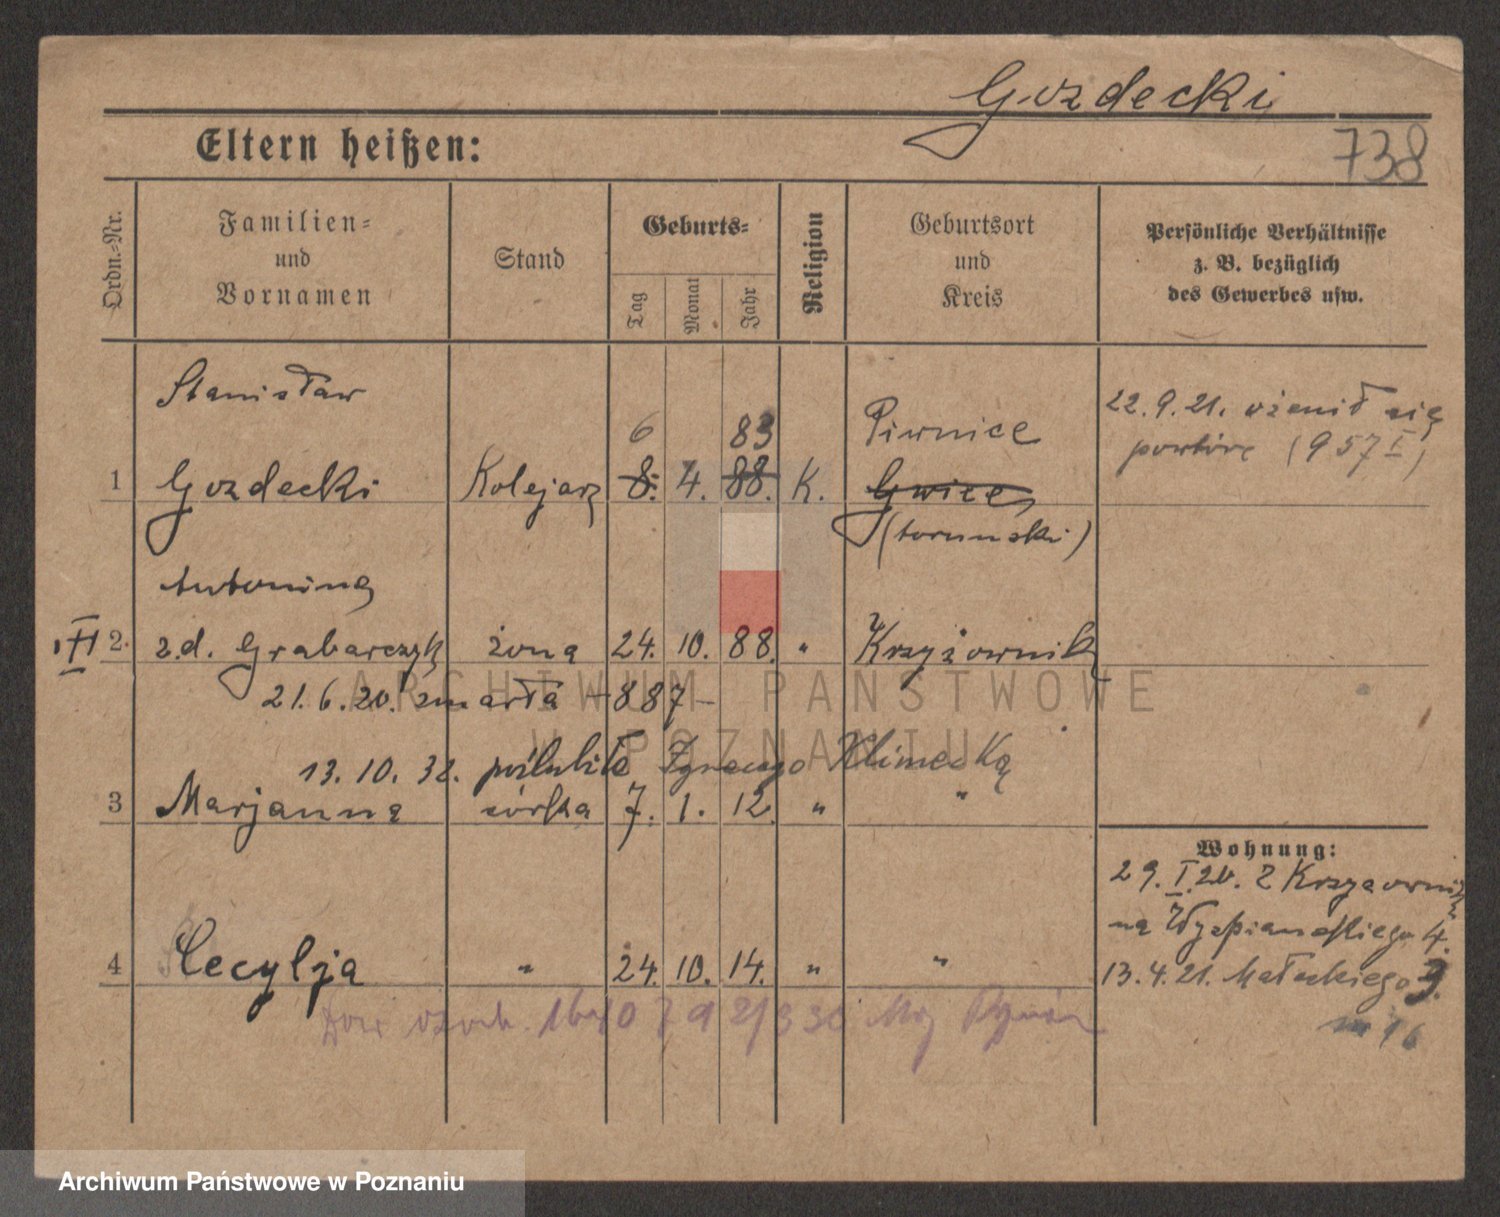 Gozdecki
738
Eltern heißen:
Ordn.-Nr.
Familien- und Vornamen
Stand
Geburts-
Tag
Monat
Jahr
Religion
Geburtsort und Kreis
Persönliche Verhältnisse z. B. bezüglich des Gewerbes usw.
Stanisław
6 83 Piwnice
22.9.21. ożenił się
1 Gozdecki Kolejarz 8. 4. 88. K. Gwice
powtórz (957 I)
(toruński)
Antonina
2. z.d. Grabarczyk żona 24. 10. 88. " Krzyżownik
21.6.20. zmarła - 887 -
13.10.32. poślubiła Ignacego Klimecką
3 Marjanna córka 7. 1. 12. " "
Wohnung:
29. I. 20. z Krzyżownik
na Wyspiańskiego 4.
4 Cecylja " 24. 10. 14. " "
13.4.21. Małeckiego 9.
m 16
Dow osob.
ARCHIWUM PAŃSTWOWE
W POZNANIU
Archiwum Państwowe w Poznaniu